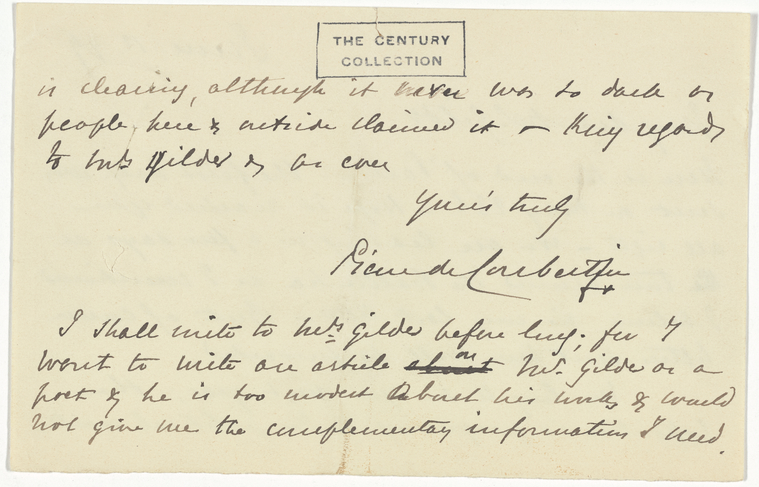 THE CENTURY
COLLECTION
is clearing, although it never was so dark as
people here & outside claimed it – King regards
to Mrs Gilder & as ever
Your's truly
Pierre de Coubertin
I shall write to Mrs Gilder before long; for I
want to write an article about on Mr. Gilder as a
poet & he is too modest about his works & would
not give me the complementary informations I need.